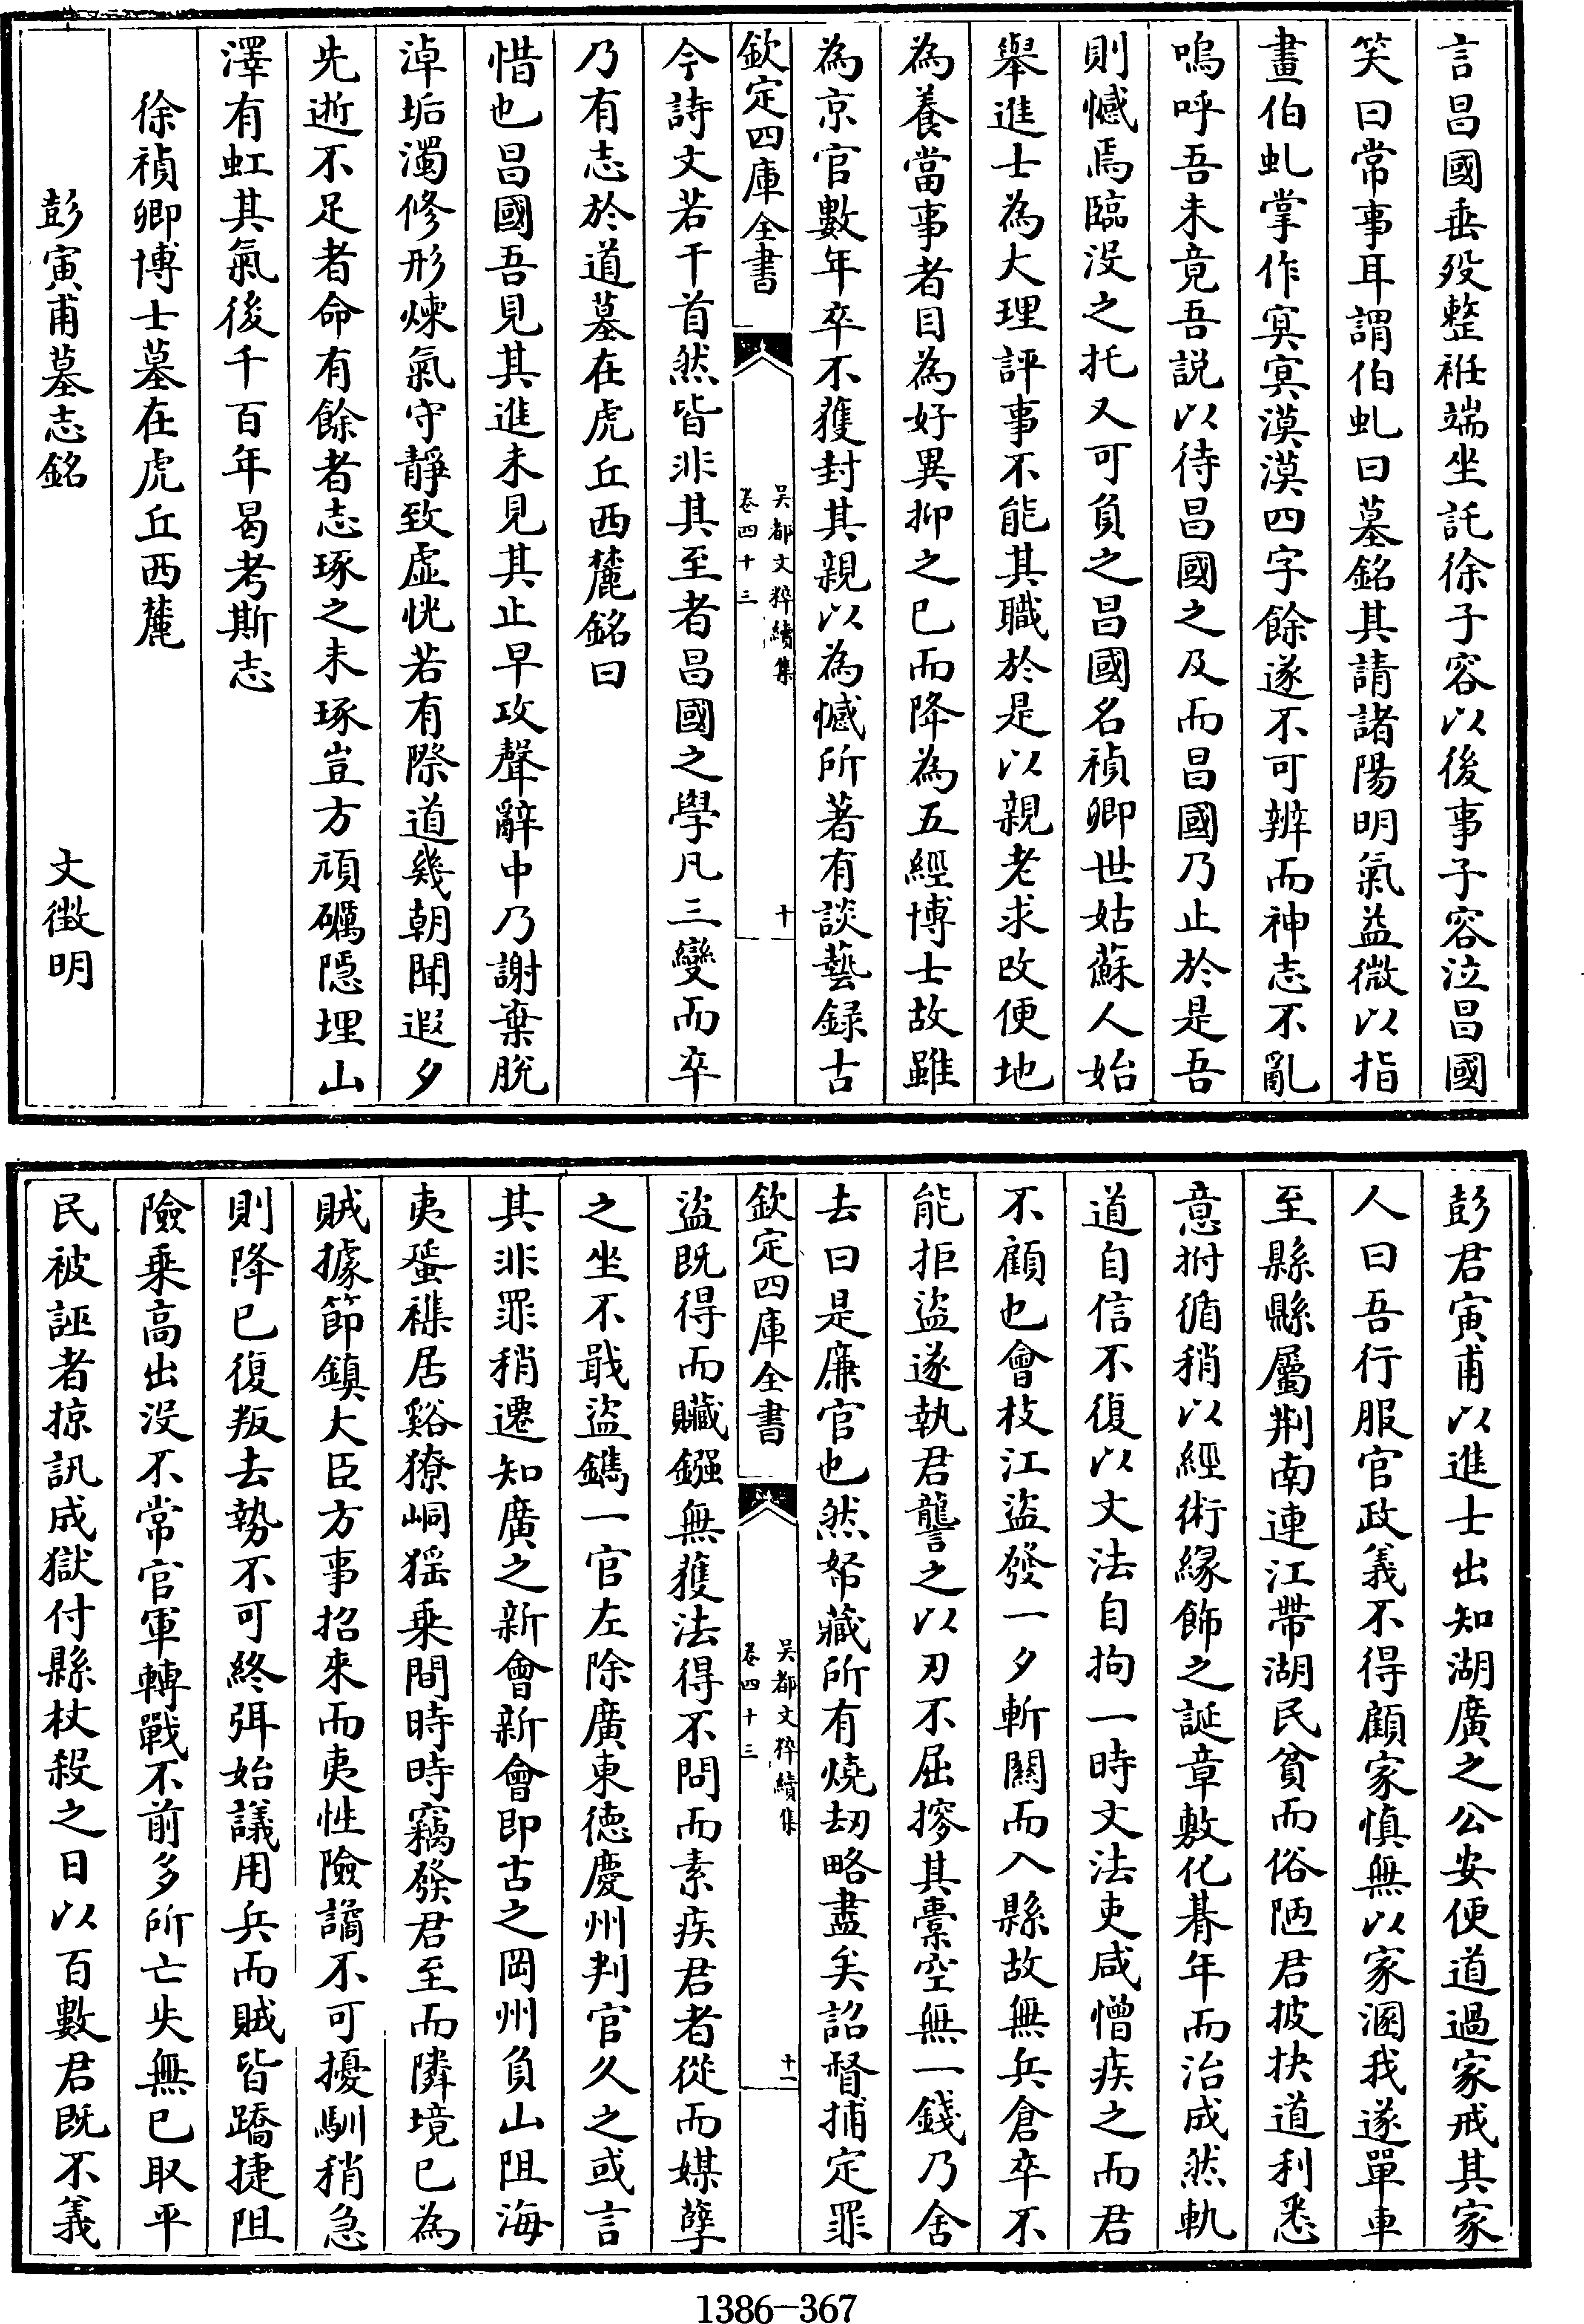 言昌國垂殁整袵端坐託徐子容以後事子容泣昌國
笑曰常事耳謂伯虬曰墓銘其請諸陽明氣益微以指
畫伯虬掌作冥冥漠漠四字餘遂不可辨而神志不亂
嗚呼吾未竟吾説以待昌國之及而昌國乃止於是吾
則憾焉臨没之托又可負之昌國名禎卿世姑蘇人始
舉進士為大理評事不能其職於是以親老求改便地
為養當事者目為好異抑之已而降為五經博士故雖
為京官數年卒不獲封其親以為憾所著有談藝録古
欽定四庫全書
吳都文粹續集
卷四十三
十
今詩文若干首然皆非其至者昌國之學凡三變而卒
乃有志於道墓在虎丘西麓銘曰
惜也昌國吾見其進未見其止早攻聲辭中乃謝棄脱
淖垢濁修形煉氣守靜致虛恍若有際道幾朝聞遐夕
先逝不足者命有餘者志琢之未琢豈方頑礪隱埋山
澤有虹其氣後千百年曷考斯志
徐禎卿博士墓在虎丘西麓
彭寅甫墓志銘
文徵明
彭君寅甫以進士出知湖廣之公安便道過家戒其家
人曰吾行服官政義不得顧家慎無以家溷我遂單車
至縣縣屬荆南連江帶湖民貧而俗陋君披抉道利悉
意拊循稍以經術緣飾之誕章敷化朞年而治成然軌
道自信不復以文法自拘一時文法吏咸憎疾之而君
不顧也會枝江盜發一夕斬關而入縣故無兵倉卒不
能拒盜遂執君讋之以刃不屈摉其橐空無一錢乃舍
去曰是廉官也然帑藏所有燒刼略盡矣詔督捕定罪
欽定四庫全書
吳都文粹續集
卷四十三
十一
盜既得而贓鏹無獲法得不問而素疾君者從而媒孽
之坐不戢盜鐫一官左除廣東德慶州判官久之或言
其非罪稍遷知廣之新會新會即古之岡州負山阻海
夷蜑襍居谿獠峒猺乗間時時竊發君至而隣境已為
賊據節鎮大臣方事招來而夷性險譎不可擾馴稍急
則降已復叛去勢不可終弭始議用兵而賊皆蹻捷阻
險乗高出没不常官軍轉戰不前多所亡失無已取平
民被誣者掠訊成獄付縣杖殺之日以百數君既不義
1386-367